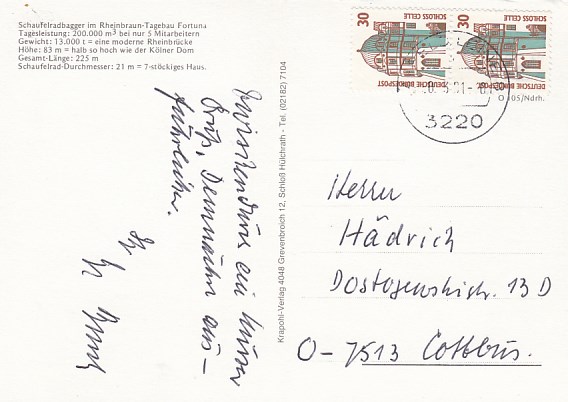 Schaufelradbagger im Rheinbraun-Tagebau Fortuna
Tagesleistung: 200.000 m³ bei nur 5 Mitarbeitern
Gewicht: 13.000 t = eine moderne Rheinbrücke
Höhe: 83 m = halb so hoch wie der Kölner Dom
Gesamt-Länge: 225 m
Schaufelrad-Durchmesser: 21 m = 7-stöckiges Haus.
30 SCHLOSS CELLE
DEUTSCHE BUNDESPOST
30 SCHLOSS CELLE
DEUTSCHE BUNDESPOST
3220
O 105/Ndrh.
Zwischendurch ein kurzer
Gruß, demnächst aus-
führlicher.
Krapohl-Verlag 4048 Grevenbroich 12, Schloß Hülchrath - Tel. (02182) 7104
Herrn
Hädrich
Dostojewskistr. 13 D
O-7513 Cottbus.